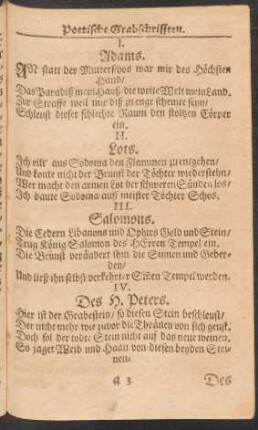 Poetische Grabschrifften.
I.
Adams.
AN statt der Mutterschos war mir des Höchsten
Hand/
Das Paradiß mein Hauß/ die weite Welt mein Land.
Zur Straffe weil mir diß zu enge scheinet seyn/
Schleust dieser schlechte Raum den stoltzen Cörper
ein.
II.
Lots.
Ich eilt' aus Sodoma den Flammen zu entgehen/
Und konte nicht der Brunst der Töchter wiederstehn/
Wer macht den armen Lot der schweren Sünden los/
Ich baute Sodoma auß meister Töchter Schos.
III.
Salomons.
Die Cedern Libanons und Ophirs Gold und Stein/
Trug König Salomon des HErren Tempel ein.
Die Brunst verändert ihm die Sinnen und Geber-
den/
Und ließ ihn selbst verkehrter Tempel werden.
IV.
Des H. Peters.
Hier ist der Grabestein/ so diesen Stein beschleust/
Der nicht mehr wie zuvor die Thränen von sich geust.
Doch sol der todte Stein nicht auf das neue weinen.
So jaget Weib und Haan von diesen beyden Stei-
nen.
a 3
Des